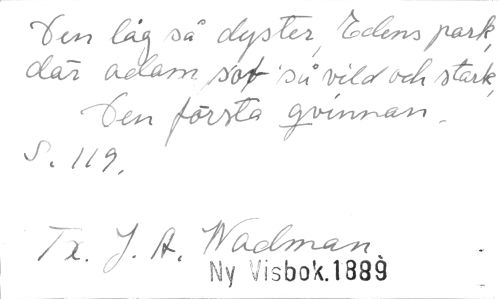 Den låg så dyster, Edens park,
där adam sof så vild och stark,
Den första qvinnan.
S. 119.
Tx. J. A. Wadman.
Ny Visbok. 1889